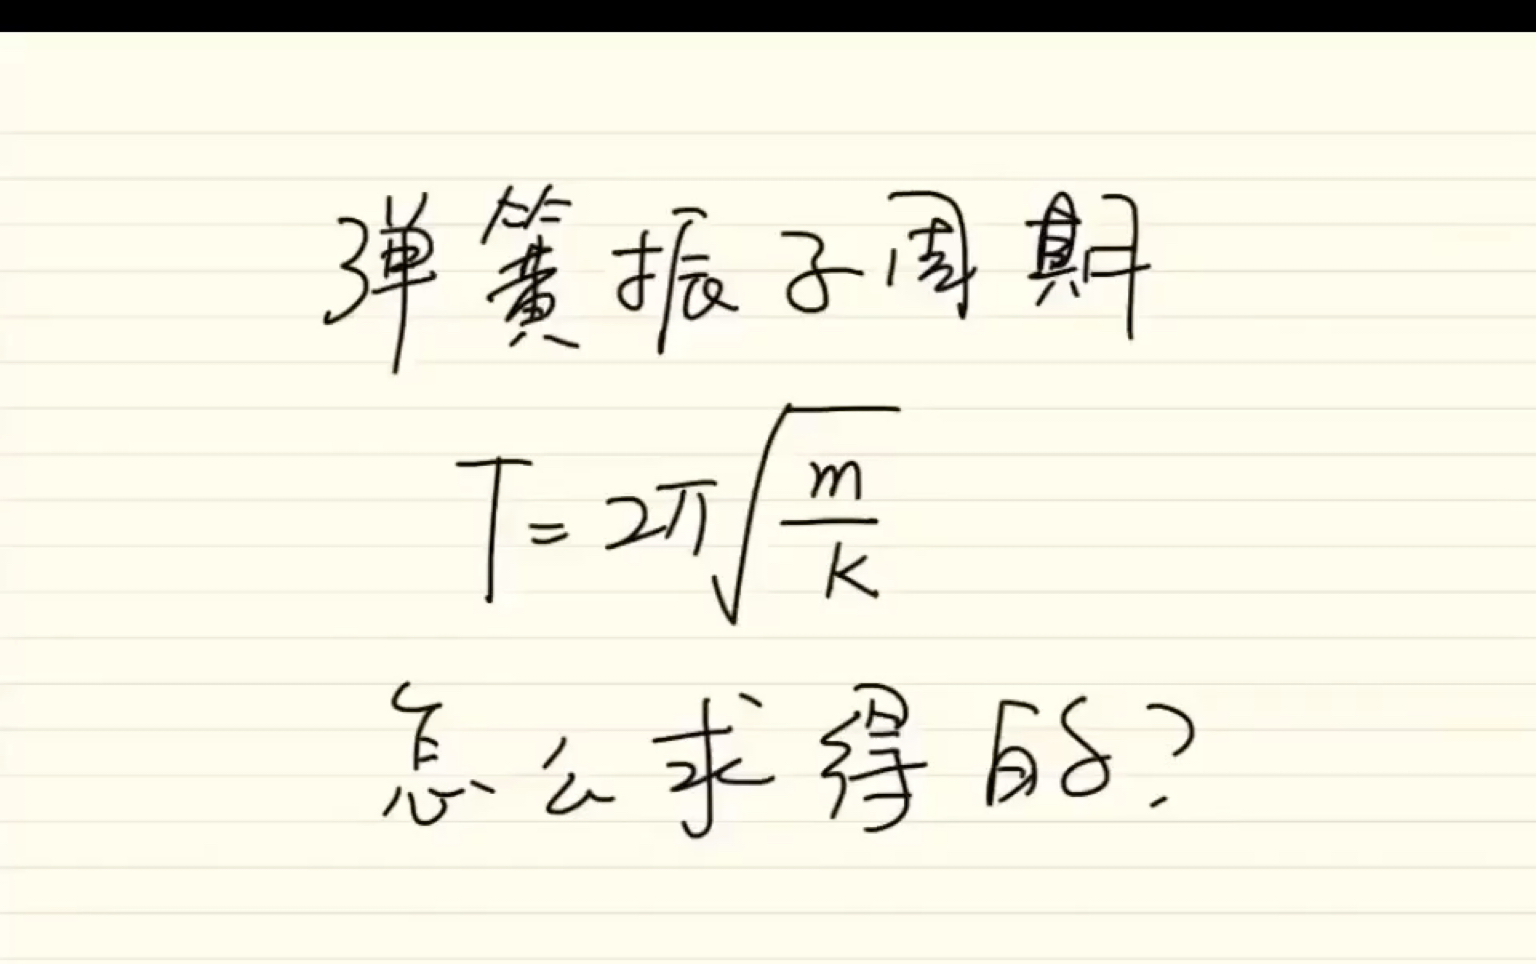 弹簧振子周期
T = 2π√(m/k)
怎么求得的?